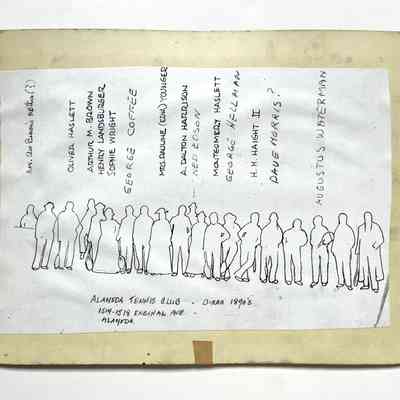 OLIVER HASLETT
ARTHUR M. BROWN
HENRY LANDSBURGER
SOPHIE WRIGHT
GEORGE COFFEE
MRS. PAULINE (EDW) YOUNGER
A. DALTON HARRISON
NED EDSON
MONTGOMERY HASLETT
GEORGE HELLMAN
H. H. HAIGHT II
DAVE MORRIS?
AUGUSTUS WATERMAN
ALAMEDA TENNIS CLUB - CIRCA 1890'S
1514-1518 ENCINAL AVE. -
ALAMEDA